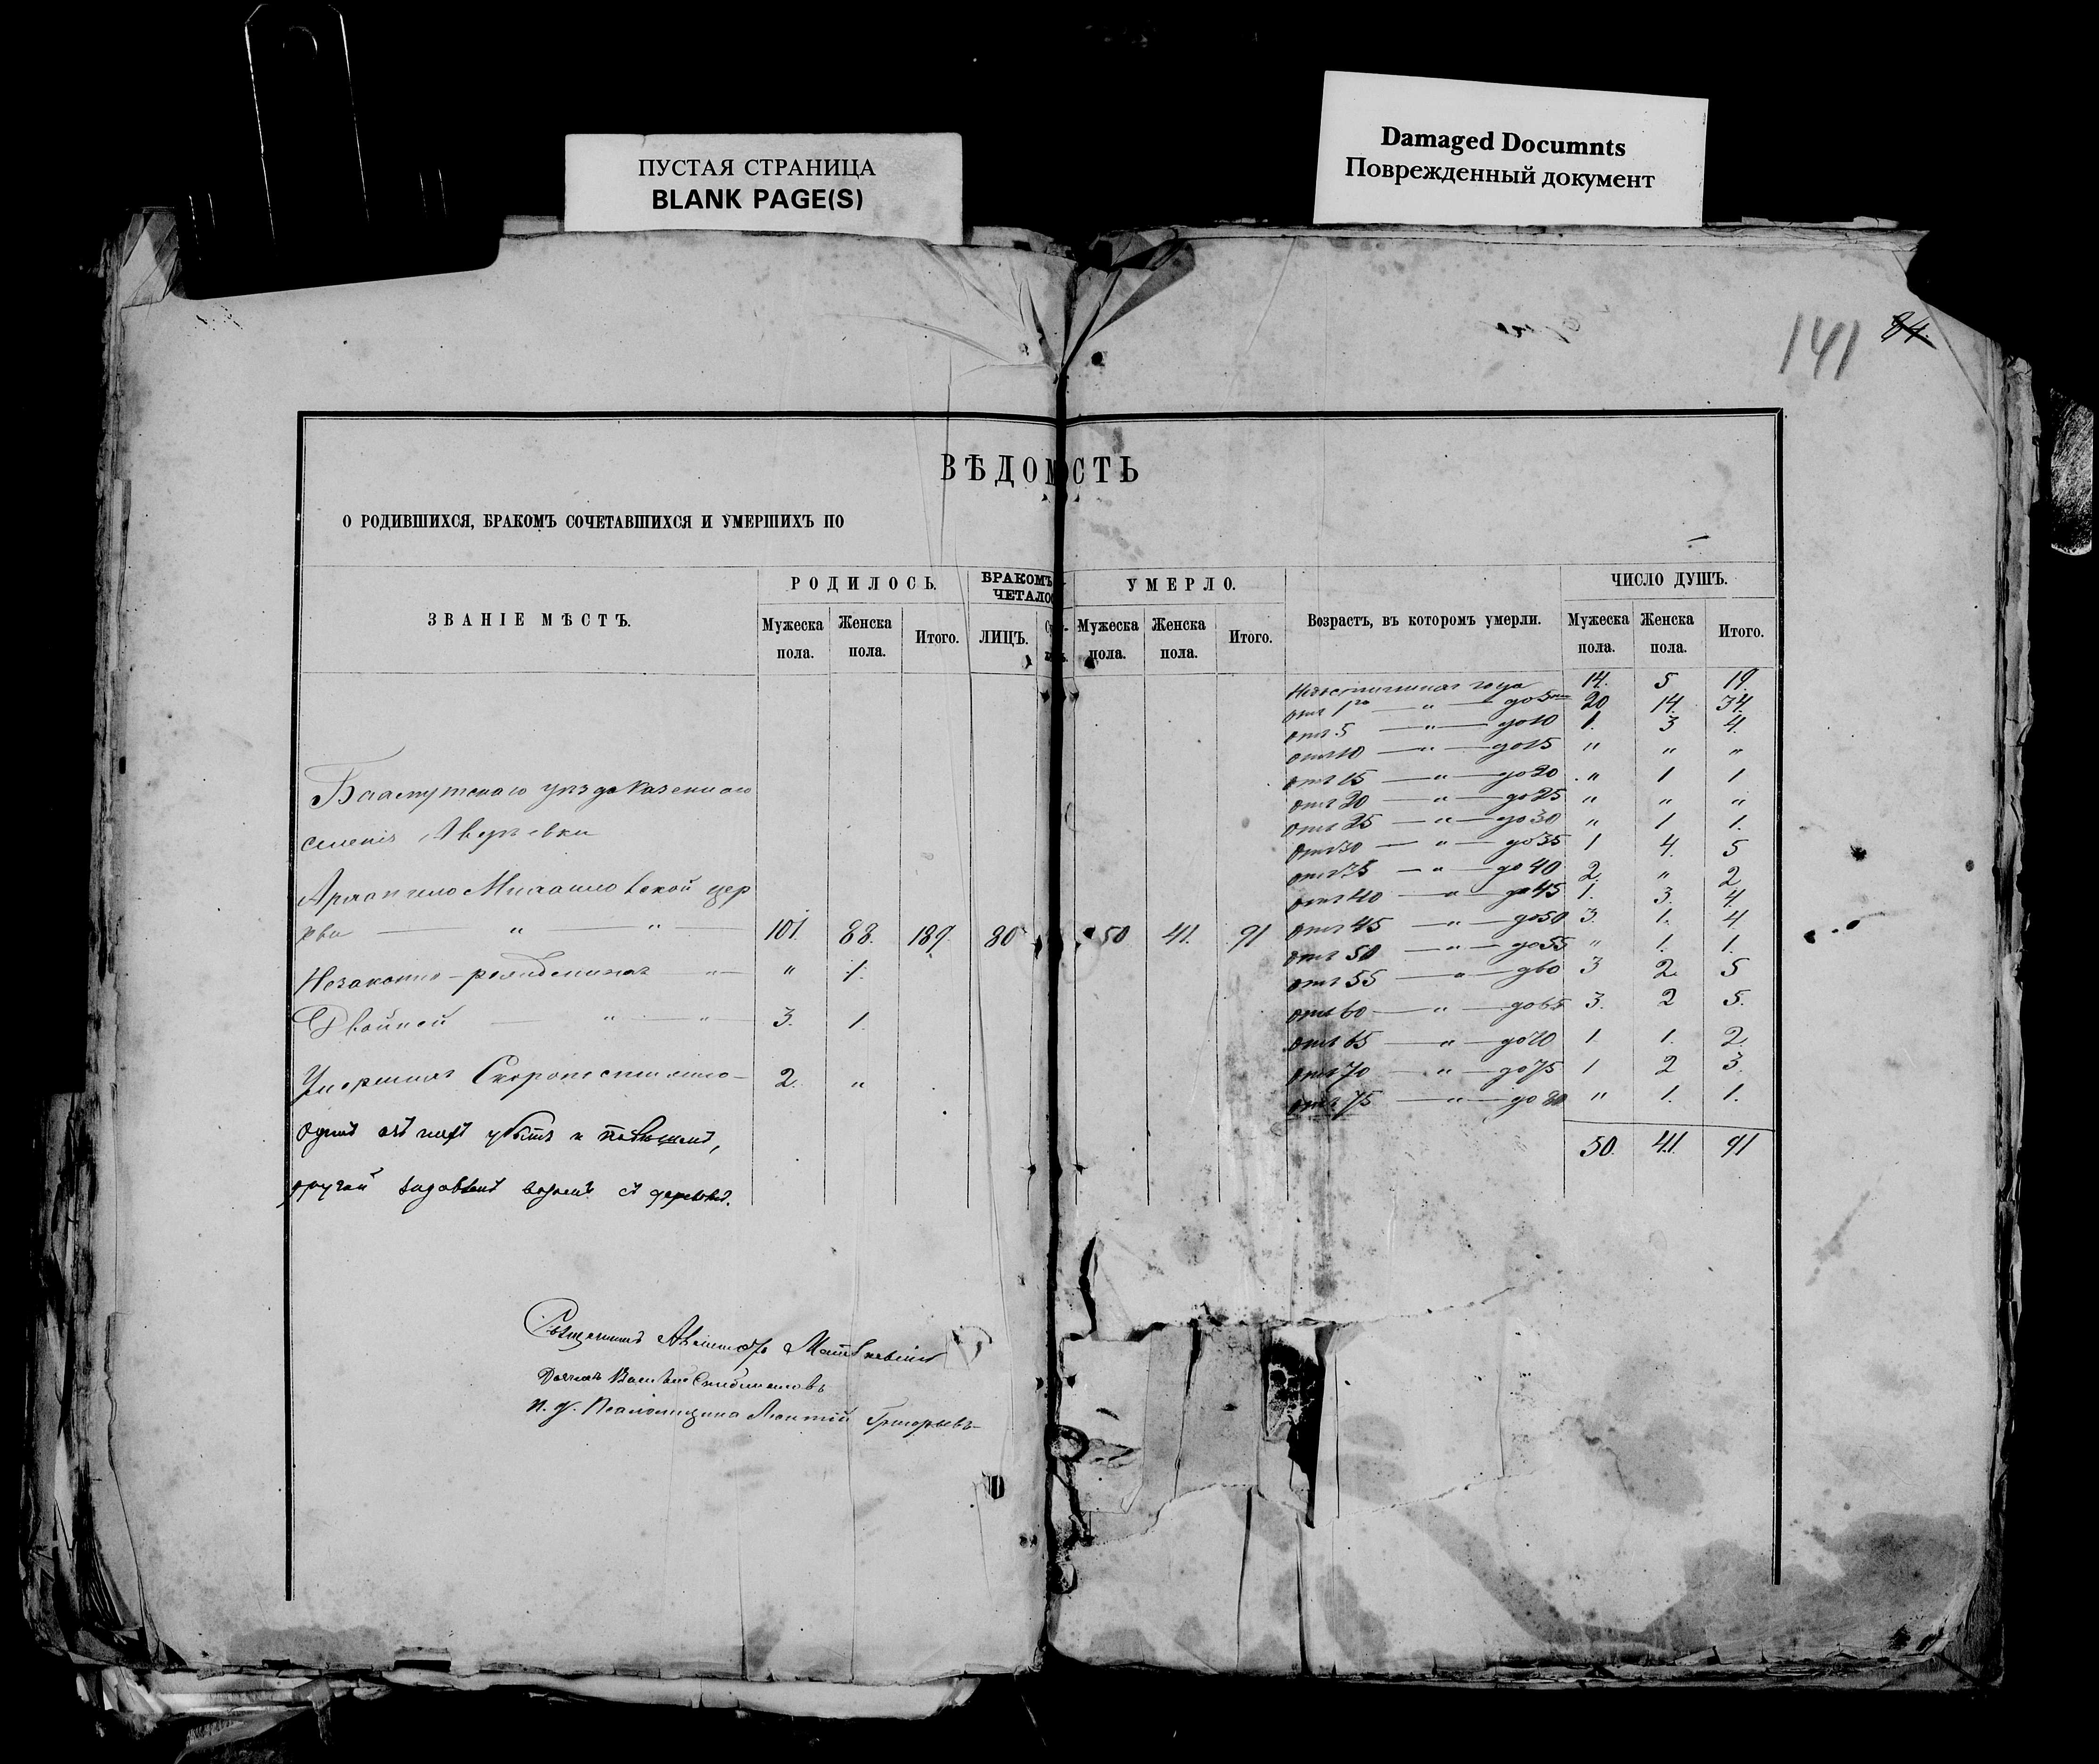 ПУСТАЯ СТРАНИЦА
BLANK PAGE(S)
Damaged Documnts
Поврежденный документ
141 84.
ВѢДОМОСТЬ
О РОДИВШИХСЯ, БРАКОМЪ СОЧЕТАВШИХСЯ И УМЕРШИХЪ ПО
ЗВАНІЕ МѢСТЪ.
РОДИЛОСЬ.
Мужеска пола.
Женска пола.
Итого.
БРАКОМЪ
ЧЕТАЛО
ЛИЦЪ.
УМЕРЛО.
Мужеска пола.
Женска пола.
Итого.
Возрастъ, въ которомъ умерли.
ЧИСЛО ДУШЪ.
Мужеска пола.
Женска пола.
Итого.
Бахмутскаго уѣзда Казеннаго
селенія
Архангело Михайловской цер
кви — " — " — 101. 88. 189. 80 50 41. 91
Незаконно-рожденныхъ " — " 1.
Двойней — " — " — 3. 1.
Умершихъ Скоропостижно — 2. "
одинъ изъ нихъ убитъ и
другой задавленъ возомъ съ
года 14. 5 19.
отъ 1го — " — до 5 20 14. 34.
отъ 5 — " — до 10 1. 3 4.
отъ 10 — " — до 15 " " "
отъ 15 — " — до 20 " 1 1
отъ 20 — " — до 25 " " "
отъ 25 — " — до 30 " 1 1.
отъ 30 — " — до 35 1 4. 5
отъ 35 — " — до 40 2. " 2
отъ 40 — " — до 45 1. 3. 4.
отъ 45 — " — до 50 3. 1. 4
отъ 50 — " — до 55 " 1. 1.
отъ 55 — " — до 60 3 2. 5
отъ 60 — " — до 65 3. 2 5.
отъ 65 — " — до 70 1. 1. 2.
отъ 70 — " — до 75 1 2 3.
отъ 75 — " — до 80 " 1. 1.
50. 41. 91
Священникъ
Дьячекъ
и. д. Псаломщика Леонтій Григорьевъ